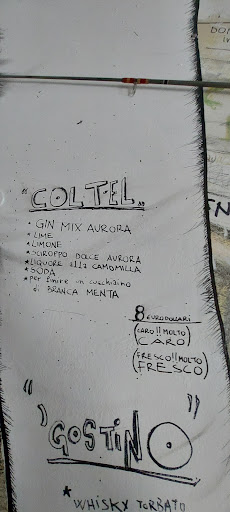 "COLTEL„
* GIN MIX AURORA
* LIME
* LIMONE
* SCIROPPO DOLCE AURORA
* LIQUORE alla CAMOMILLA
* SODA
* per finire un cucchiaino
di BRANCA MENTA
8 EURODOLLARI
(CARO!!MOLTO
CARO)
(FRESCO!!MOLTO
FRESCO)
"GOSTINO"
* WHISKY TORBATO